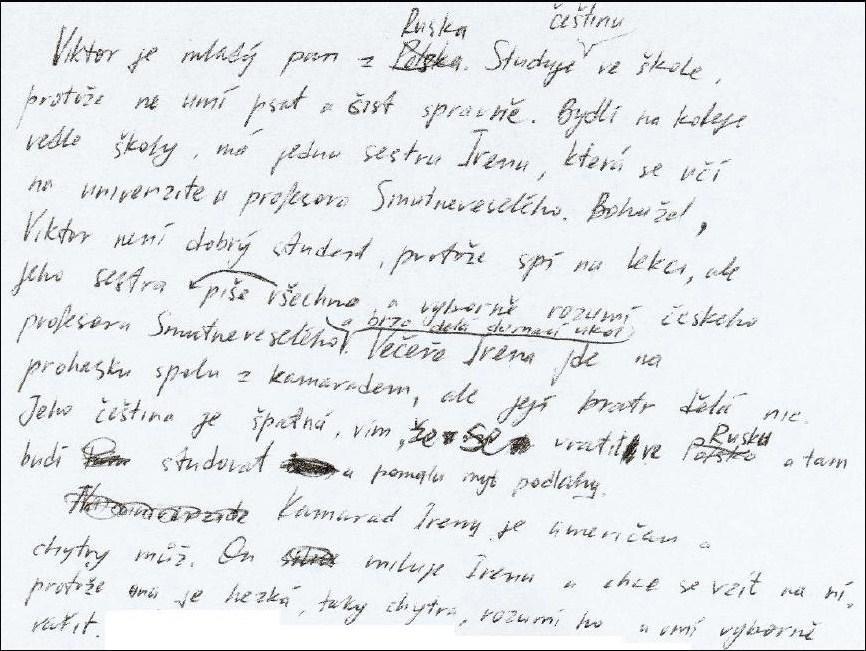 Ruska češtinu
Viktor je mladý pan z Polska. Studuje ve škole,
protože ne umí psat a čist spravně. Bydlí na koleje
vedle školy, má jednu sestru Irenu, která se učí
na univerzite u profesora Smutneveselého. Bohužel,
Viktor není dobrý student, protože spí na lekci, ale
jeho sestra piše všechno a výborně rozumí českeho
a brzo dělá domací ukol
profesora Smutneveselého. Večeře Irena jde na
prohasku spolu z kamaradem, ale její bratr dělá nic.
Jeho čeština je špatná, vim, že se vratit ve Polsko a tam
Rusku
budi studovat a pomalu myt podlahy.
Kamarad Ireny je američan a
chytry můž. On miluje Irenu a chce se vzít na ní,
protože ona je hezká, taky chytra, rozumí ho a umí vyborně
vařit.